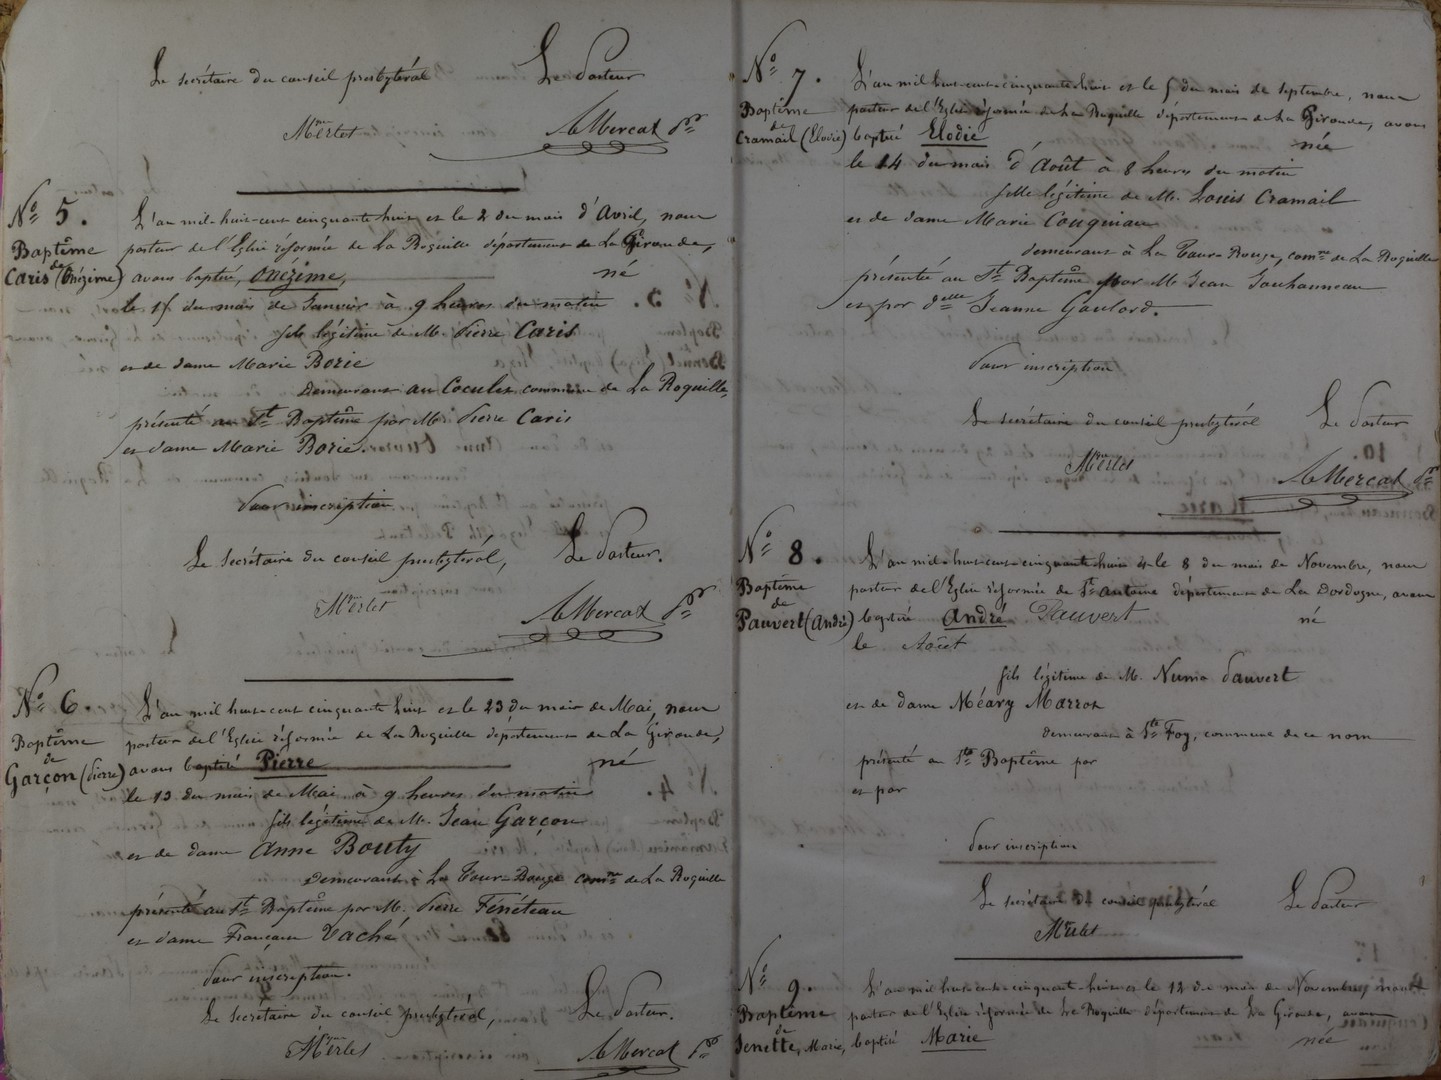 Le secrétaire du conseil presbytéral Le Pasteur
Merlet AMercat
N° 5.
Baptême
de
Caris (Onézime)
L'an mil-huit-cent cinquante huit et le 2 du mois d'Avril, nous
pasteur de l'Eglise réformée de La Roquille département de La Gironde,
avons baptisé, Onézime, né
le 15 du mois de Janvier à 9 heures du matin
fils légitime de M. Pierre Caris
et de dame Marie Borie
Demeurant au Coculet commune de La Roquille,
présenté au St Baptême par M. Pierre Caris
et dame Marie Borie.
Pour inscription
Le secrétaire du conseil presbytéral, Le Pasteur.
Merlet AMercat
N° 6.
Baptême
de
Garçon (Pierre)
L'an mil huit-cent cinquante huit et le 23 du mois de Mai, nous
pasteur de l'Eglise réformée de La Roquille département de La Gironde,
avons baptisé Pierre né
le 13 du mois de Mai à 9 heures du matin
fils légitime de M. Jean Garçon
et de dame Anne Bouty
demeurant à La Tour-Rouge comne de La Roquille
présenté au St Baptême par M. Pierre Fénéteau
et dame Françoise Vaché
Pour inscription.
Le Secrétaire du conseil presbytéral, Le Pasteur.
Merlet AMercat
N° 7.
Baptême
de
Cramail (Elodie)
L'an mil-huit-cent-cinquante-huit et le 5 du mois de Septembre, nous
pasteur de l'Eglise réformée de La Roquille département de La Gironde, avons
baptisé Elodie née
le 14 du mois d'Août à 8 heures du matin
fille légitime de M. Louis Cramail
et de dame Marie Couquiau
demeurant à La Tour-Rouge, comne de La Roquille
présenté au St Baptême par M. Jean Jouhanneau
et par Delle Jeanne Goulard.
Pour inscription
Le secrétaire du conseil presbytéral Le Pasteur
Merlet AMercat
N° 8.
Baptême
de
Pauvert (André)
L'an mil-huit-cent-cinquante huit & le 8 du mois de Novembre, nous
pasteur de l'Eglise réformée de St Antoine département de La Dordogne, avons
baptisé André Pauvert né
le Août
fils légitime de M. Numa Pauvert
et de dame Méary Marrot
demeurant à Ste Foy, commune de ce nom
présenté au St Baptême par
et par
Pour inscription
Le secrétaire du conseil presbytéral Le Pasteur
Merlet
N° 9.
Baptême
de
Jenette, Marie,
L'an mil huit-cent-cinquante-huit et le 12 du mois de Novembre, nous
pasteur de l'Eglise réformée de La Roquille département de La Gironde, avons
baptisé Marie née